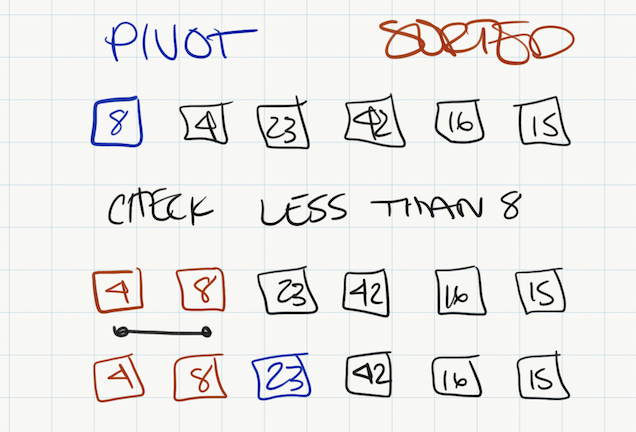 PIVOT SORTED
8 4 23 42 16 15
CHECK LESS THAN 8
4 8 23 42 16 15
4 8 23 42 16 15